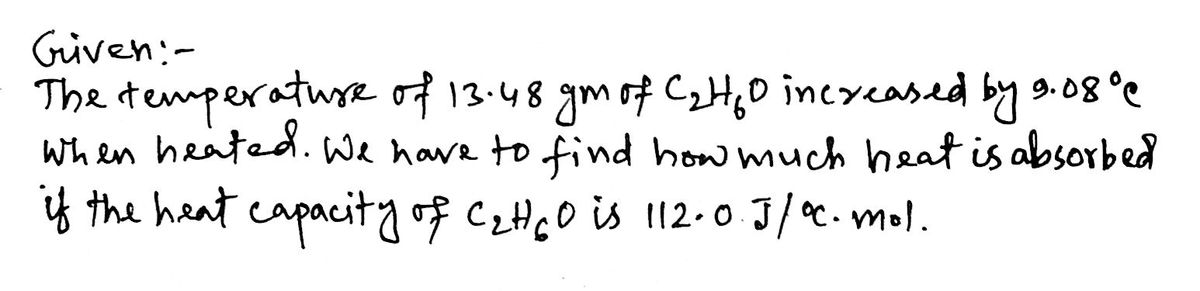 Given:-
The temperature of 13.48 gm of C₂H₆O increased by 9.08°c
when heated. We have to find how much heat is absorbed
if the heat capacity of C₂H₆O is 112.0 J/°c. mol.